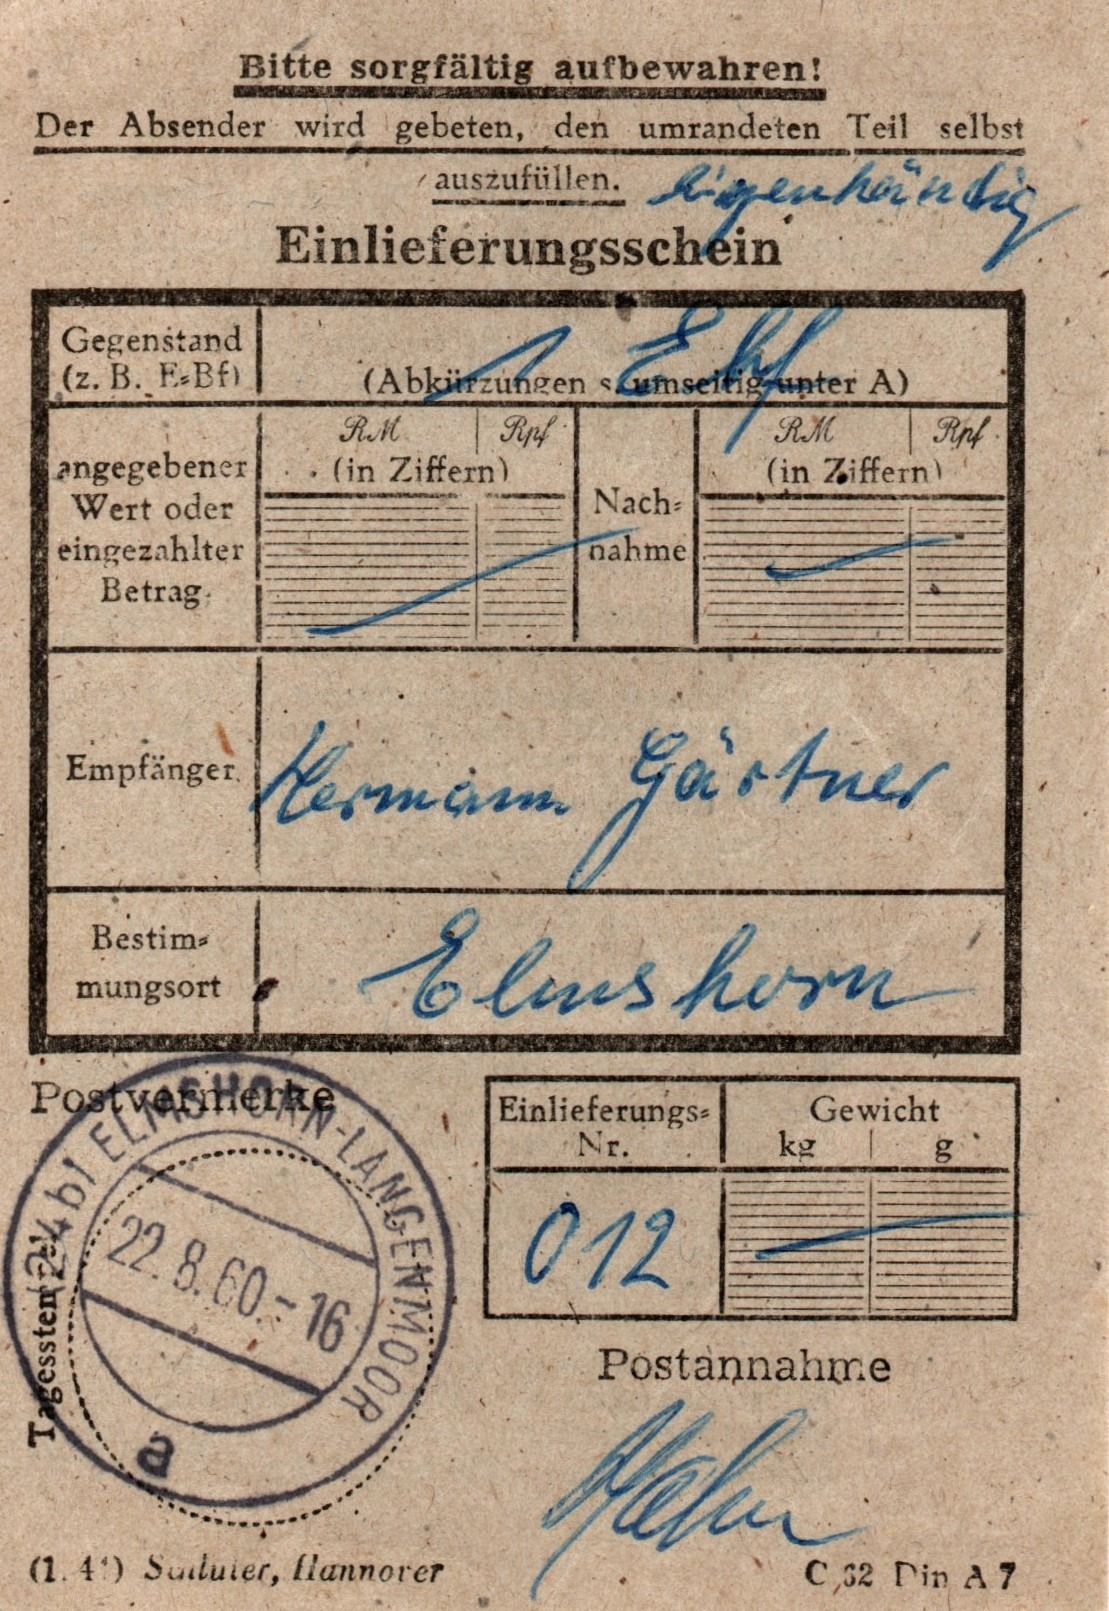 Bitte sorgfältig aufbewahren!
Der Absender wird gebeten, den umrandeten Teil selbst
auszufüllen. eigenhändig
Einlieferungsschein
Gegenstand
(z. B. E=Bf)
1 Ebf
(Abkürzungen s. umseitig unter A)
angegebener
Wert oder
eingezahlter
Betrag
RM Rpf
(in Ziffern)
Nach=
nahme
RM Rpf
(in Ziffern)
Empfänger
Hermann Gärtner
Bestim=
mungsort
Elmshorn
Postvermerke
(24b) ELMSHORN-LANGENMOOR
22.8.60.-16
a
Einlieferungs=
Nr.
012
Gewicht
kg g
Postannahme
Hahn
Hannover
C 62 Din A 7